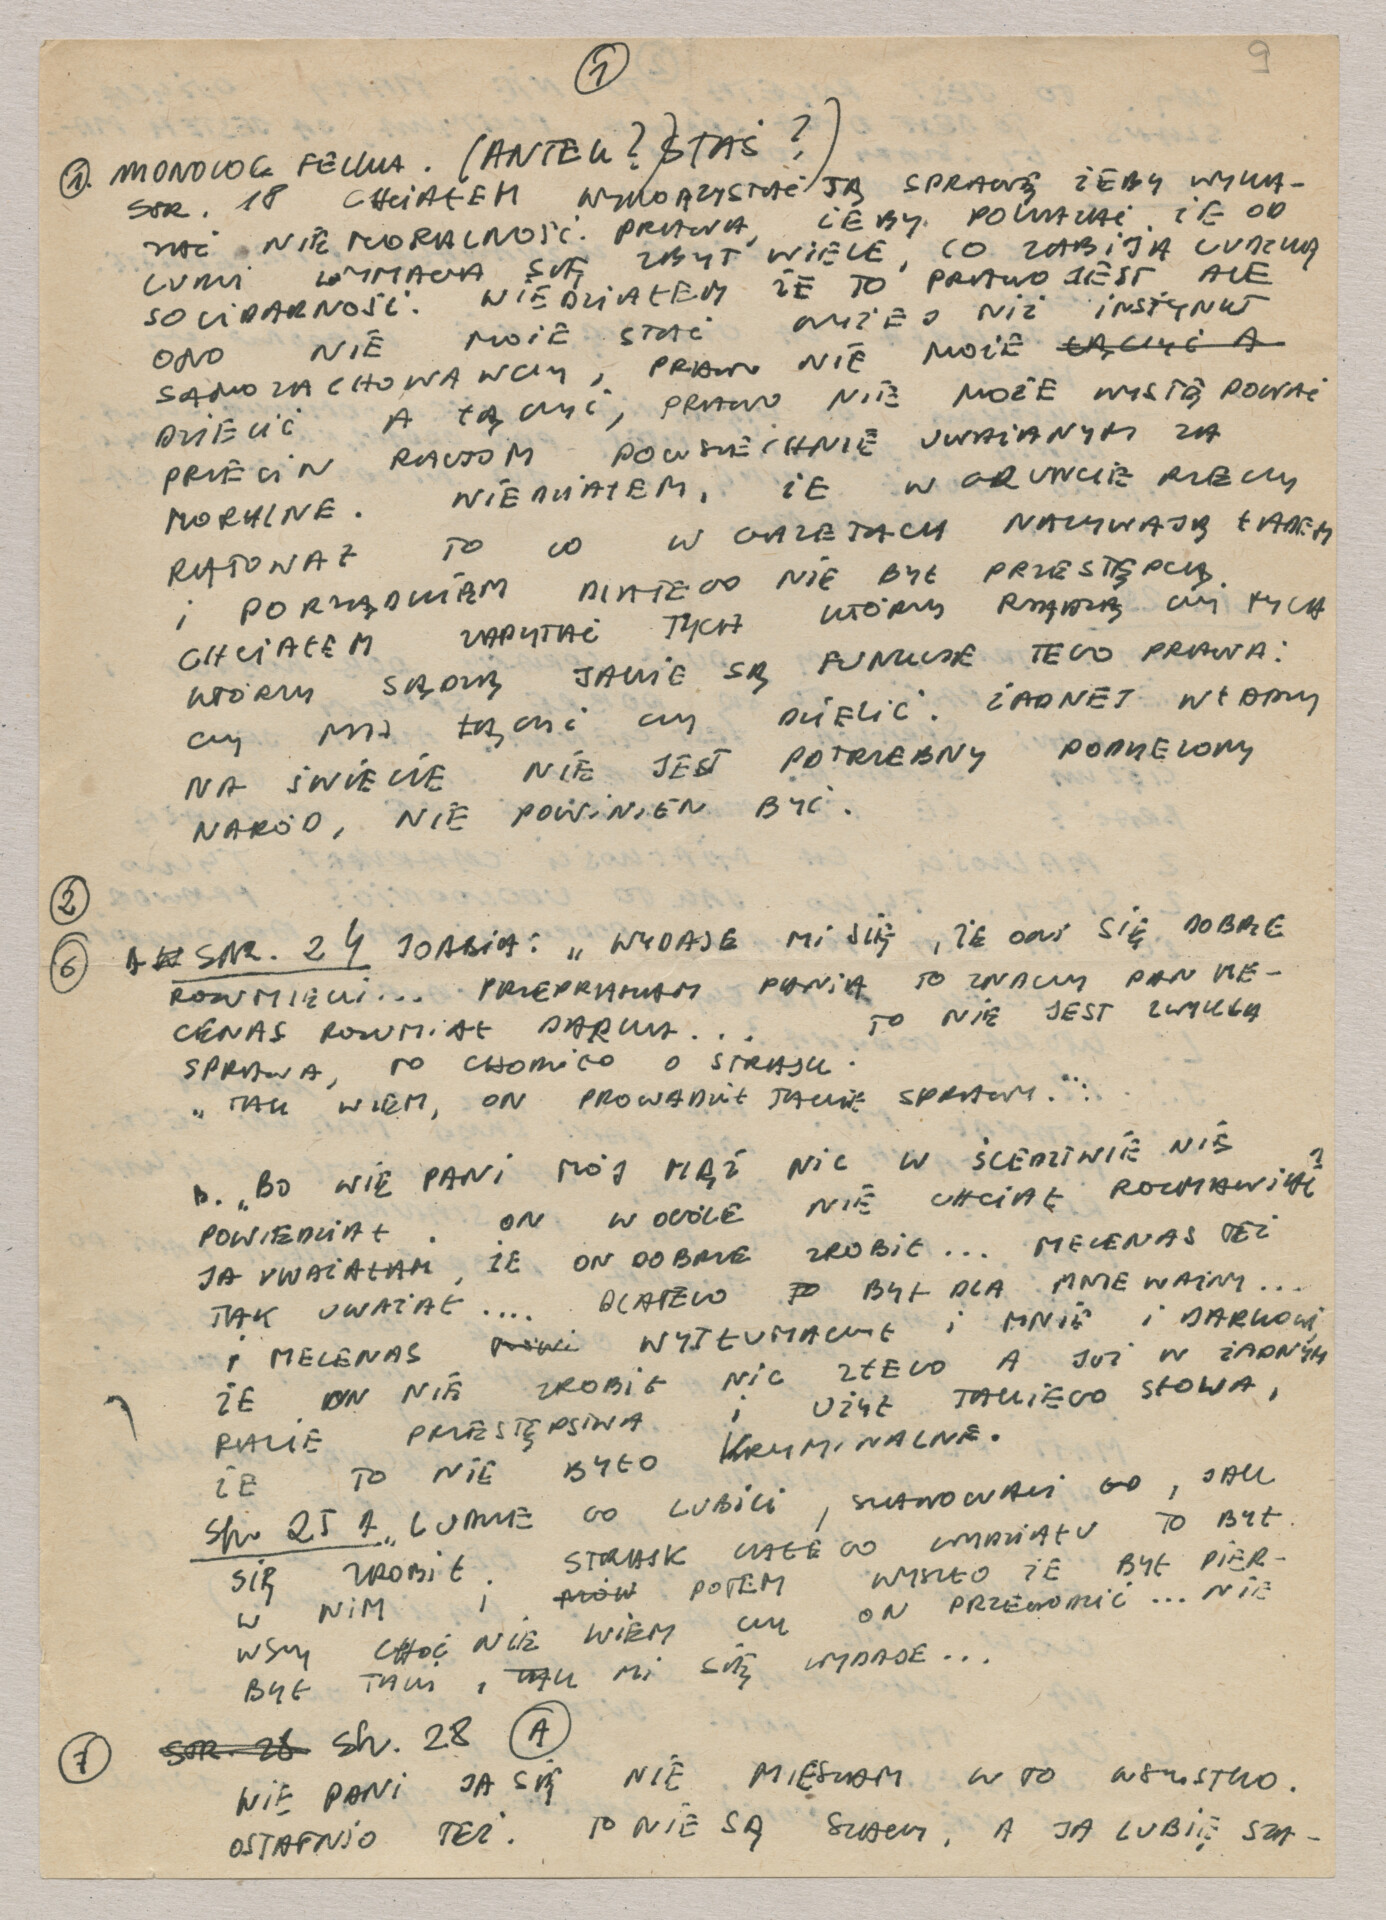 ①
9
①. MONOLOG FELKA. (ANTEK? STAŚ?)
STR. 18 CHCIAŁEM WYKORZYSTAĆ TĄ SPRAWĘ ŻEBY WYKA-
ZAĆ NIEMORALNOŚĆ PRAWA, ŻEBY POKAZAĆ, ŻE OD
LUDZI WYMAGA SIĘ ZBYT WIELE, CO ZABIJA LUDZKĄ
SOLIDARNOŚĆ. WIEDZIAŁEM ŻE TO PRAWO JEST ALE
ONO NIE MOŻE STAĆ WYŻEJ NIŻ INSTYNKT
SAMOZACHOWAWCZY, PRAWO NIE MOŻE ŁĄCZYĆ A
DZIELIĆ A ŁĄCZYĆ, PRAWO NIE MOŻE WYSTĘPOWAĆ
PRZECIW RACJOM POWSZECHNIE UWAŻANYM ZA
MORALNE. WIEDZIAŁEM, ŻE W GRUNCIE RZECZY
RATOWAŁ TO CO W GAZETACH NAZYWAJĄ ŁADEM
i PORZĄDKIEM DLATEGO NIE BYŁ PRZESTĘPCĄ.
CHCIAŁEM ZAPYTAĆ TYCH KTÓRZY RZĄDZĄ CZY TYCH
KTÓRZY SĄDZĄ JAKIE SĄ FUNKCJE TEGO PRAWA:
CZY MA ŁĄCZYĆ CZY DZIELIĆ. ŻADNEJ WŁADZY
NA ŚWIECIE NIE JEST POTRZEBNY PODZIELONY
NARÓD, NIE POWINIEN BYĆ.
②
⑥ A STR. 24 JOASIA: „WYDAJE MI SIĘ, ŻE ONI SIĘ DOBRZE
ROZUMIELI... PRZEPRASZAM PANIĄ TO ZNACZY PAN ME-
CENAS ROZUMIAŁ DARKA... TO NIE JEST ZWYKŁA
SPRAWA, TO CHODZIŁO O STRAJK.
„TAK WIEM, ON PROWADZIŁ TAKIE SPRAWY."...
B. „BO WIE PANI MÓJ MĄŻ NIC W ŚLEDZTWIE NIE
POWIEDZIAŁ. ON W OGÓLE NIE CHCIAŁ ROZMAWIAĆ
JA UWAŻAŁAM, ŻE ON DOBRZE ZROBIŁ... MECENAS TEŻ
TAK UWAŻAŁ.... DLATEGO TO BYŁ DLA MNIE WAŻNY...
i MECENAS MÓWI WYTŁUMACZYŁ i MNIE i DARKOWI,
ŻE ON NIE ZROBIŁ NIC ZŁEGO A JUŻ W ŻADNYM
RAZIE PRZESTĘPSTWA i UŻYŁ TAKIEGO SŁOWA,
ŻE TO NIE BYŁO KRYMINALNE.
Str 25 A „LUDZIE GO LUBILI, SZANOWALI GO, JAK
SIĘ ZROBIŁ STRAJK CAŁEGO WYDZIAŁU TO BYŁ
W NIM i MÓW POTEM WYSZŁO ŻE BYŁ PIER-
WSZY CHOĆ NIE WIEM CZY ON PRZEWODZIĆ... NIE
BYŁ TAKI, TAK MI SIĘ WYDAJE...
⑦ STR. 28 Str. 28 Ⓐ
WIE PANI JA SIĘ NIE MIESZAM W TO WSZYSTKO.
OSTATNIO TEŻ. TO NIE SĄ SZACHY, A JA LUBIĘ SZA-